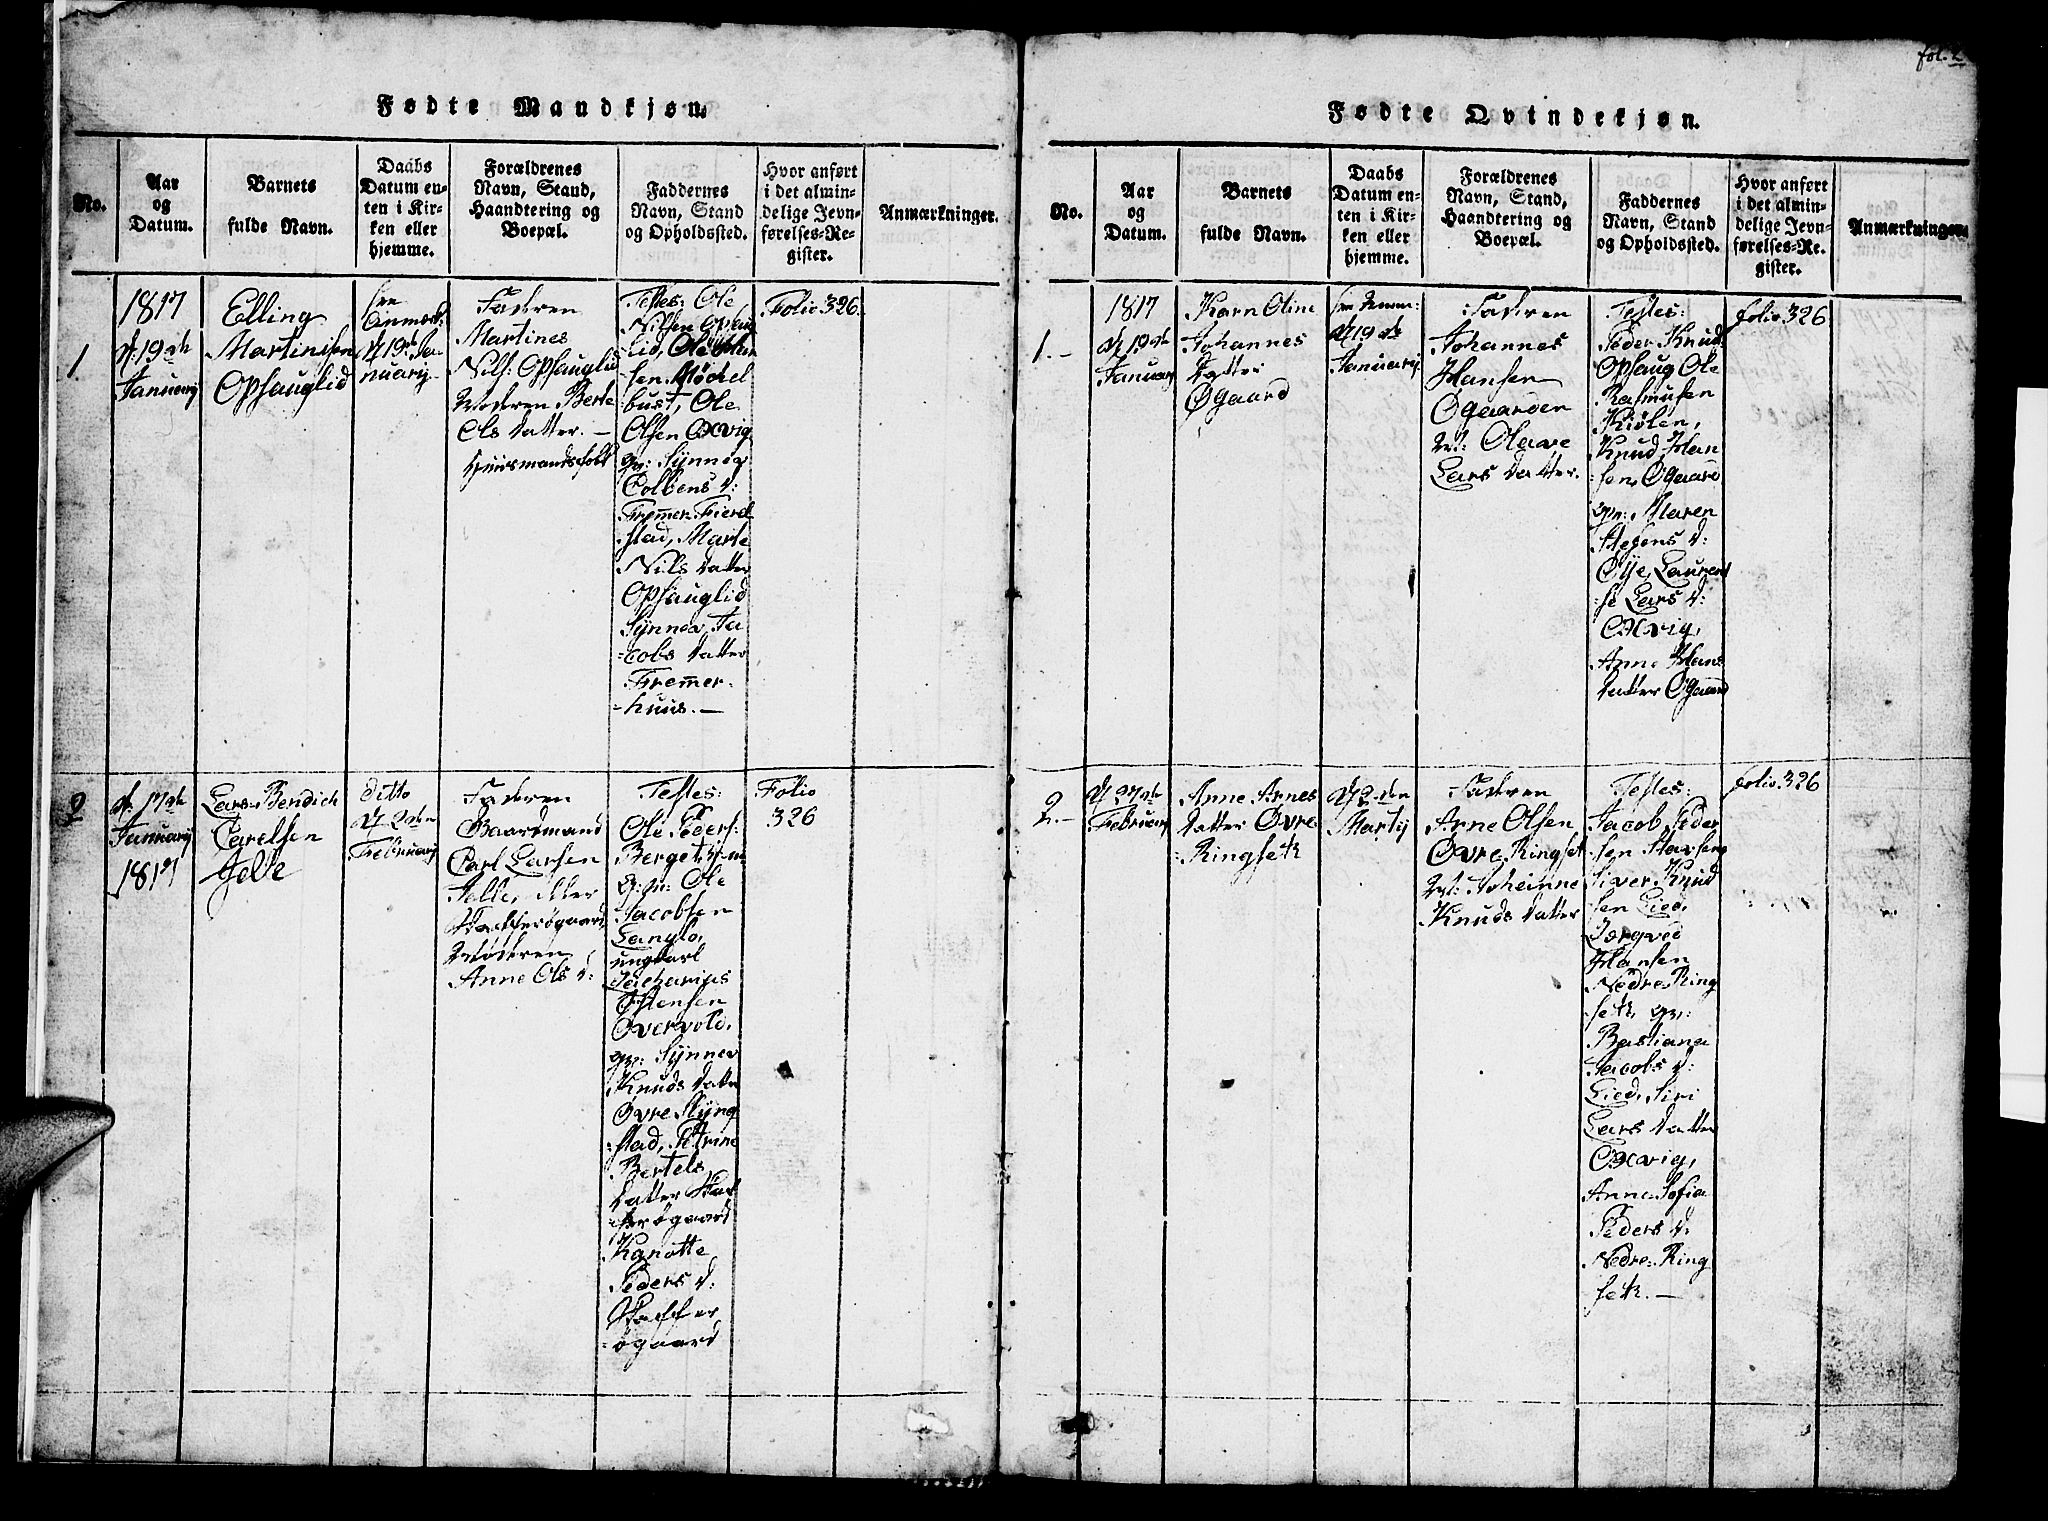 fol. 2
Fødte Mandkjøn.
No.
Aar
og
Datum.
Barnets
fulde Navn.
Daabs
Datum en-
ten i Kir-
ken eller
hjemme.
Forældrenes
Navn, Stand,
Haandtering og
Boepæl.
Faddernes
Navn, Stand
og Opholdssted.
Hvor anført
i det almin-
delige Jevn-
førelses-Re-
gister.
Anmærkninger.
1
1817
d: 19de
Januarij
Elling
Martinisen
Opsauglid
see
Anmerk:
d 19de Ja-
nuarij
Faderen
Martines
Nils: Opsauglid
Moderen Berte
Ols Datter. —
Huusmandsfolk
Testes: Ole
Nilsen Opsaug
lid, Ole Johan
sen Möchel
bust, Ole
Olsen Oxvig
qv: Synnev
Colbens d:
Fremmer-Fierel
stad, Marte
Nils Datter
Opsauglid
Synnev Ja
-cobs Datter
Fremmer-
-huus. —
Folio 326
2
d: 17de
Januarij
1817
Lars Bendich
Carelsen
Jelle
ditto
d 2den
Februarij
Faderen
Gaardmand
Carl Larsen
Jelle, eller
Stafferøgaard
Moderen
Anne Ols d:
Testes:
Ole Peders:
Berget, Hm
g: m: Ole
Jacobsen
Langlo,
ungkarl
Zacharius
Østensen
Overvold,
qv: Synnev
Knuds Datter
Øvre Slyng
stad, Petrine
Bertels
Datter Staf
ferøgaard
Kanutte
Peders d:
Staffer
-øgaard
Folio
326
Fødte Qvindekjøn.
No.
Aar
og
Datum.
Barnets
fulde Navn.
Daabs
Datum en-
ten i Kir-
ken eller
hjemme.
Forældrenes
Navn, Stand,
Haandtering og
Boepæl.
Faddernes
Navn, Stand
og Opholdssted.
Hvor anført
i det almin-
delige Jevn-
førelses-Re-
gister.
Anmærkninger.
1. —
1817
d 12de
Januarij
Karn Oline
Johannes
Datter
Øgaard
d 19de
Januarij
Faderen
Johannes
Hansen
Øgaarden
M: Olave
Lars Datter.
Testes:
Peder Knud:
Opsaug Ole
Rasmusen
Kiølen,
Knud Han
-sen, Øgaard
qv: Maren
Stefens d:
Øije, Laurent
-se Lars d:
Oxvig,
Anne Hans
Datter Øgaard
folio 326
2. —
d 27de
Februarij
Anne Arnes
Datter Øvre
-Ringseth
d 2den
Martij
Faderen
Arne Olsen
Øvre Ringset
M: Joheinne
Knuds Datter
Testes:
Jacob Peder
sen Stavseng
Siver Knud
sen Lied,
Ingvold
Hansen
Nedre Ring
-seth, qv:
Bastiana
Jacobs d:
Lied, Siri
Lars Datter
Oxvig,
Anne Sofia
Peders d:
Nedre Ring
seth. —
folio 326